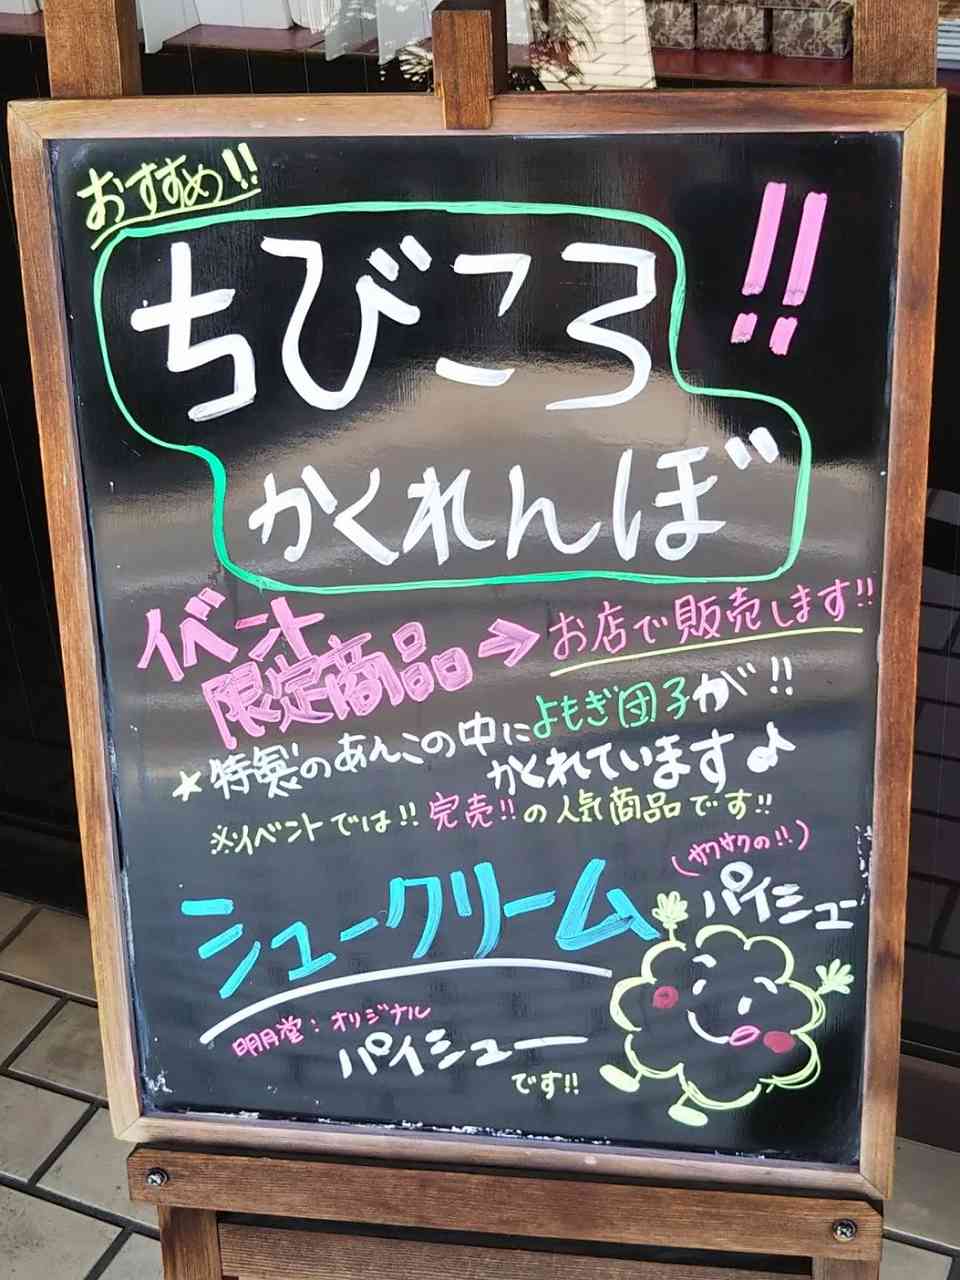 おすすめ!!
ちびころ!!
かくれんぼ
イベント
限定商品→お店で販売します!!
★特製のあんこの中によもぎ団子が!!
かくれています♪
※イベントでは!!完売!!の人気商品です!!
シュークリーム
(サクサクの!!)
パイシュー
明月堂:オリジナル
パイシュー
です!!